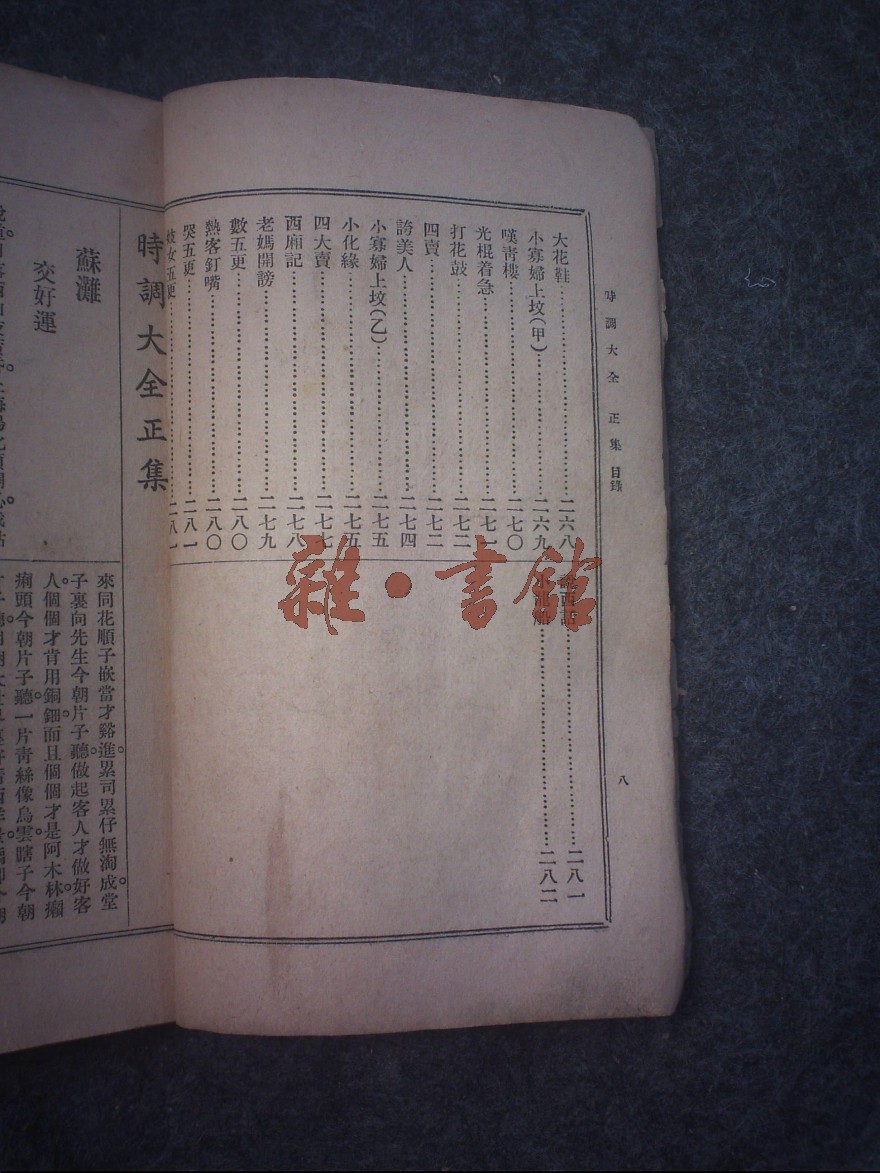 時調大全 正集 目錄
八
大花鞋……二六八
小寡婦上墳(甲)……二六九
嘆靑樓……二七〇
光棍着急……二七一
打花鼓……二七二
四賣……二七二
誇美人……二七四
小寡婦上墳(乙)……二七五
小化緣……二七五
四大賣……二七七
西廂記……二七八
老媽開嗙……二七九
數五更……二八〇
熱客釘嘴……二八〇
哭五更……二八一
妓女五更……二八一
……二八一
……二八二
雜·書館
時調大全正集
蘇灘
交好運
來同花順子嵌當才谿進。累司累仔無淘成。堂
子裏向先生今朝片子聽。做起客人才做好客
人。個個才肯用銅鈿。而且個個才是阿木林。癩
痢頭今朝片子聽。一片靑絲像烏雲。瞎子今朝